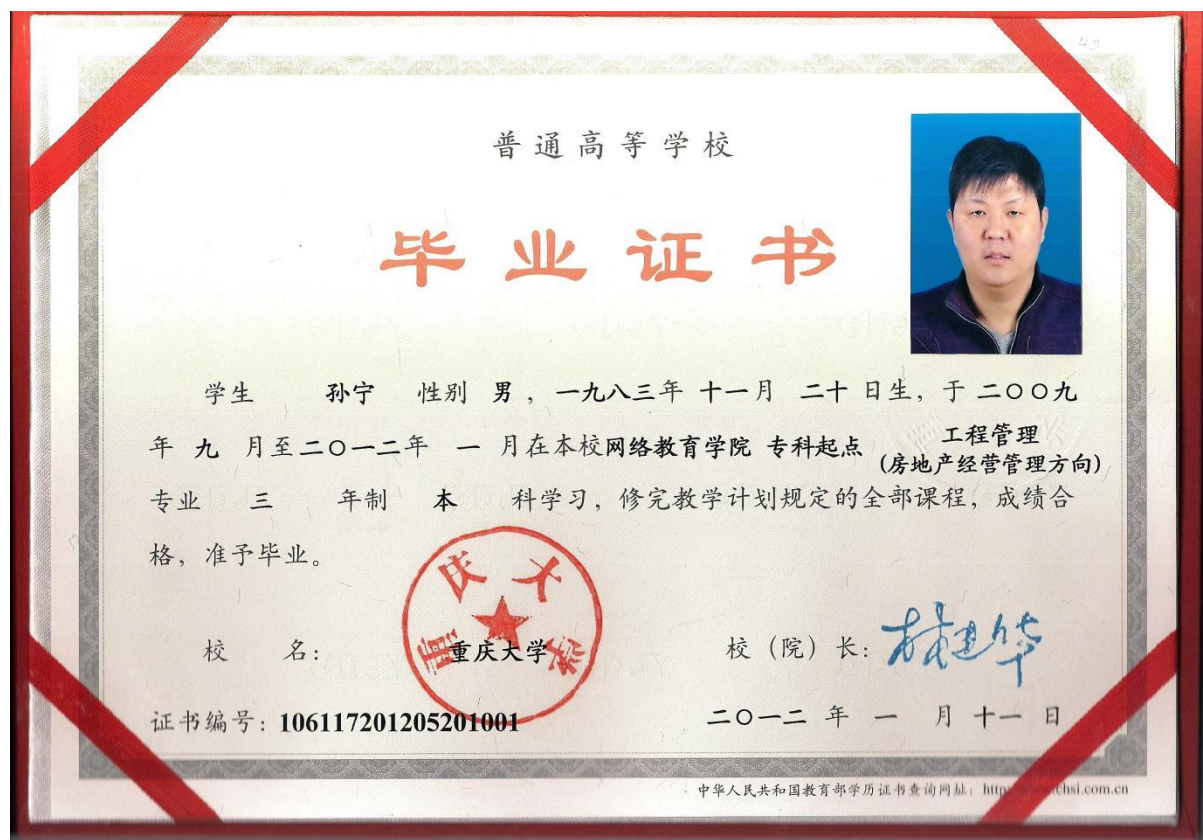 普通高等学校
毕业证书
学生 孙宁 性别 男，一九八三年 十一月 二十 日生，于 二〇〇九
年 九 月至二〇一二年 一 月在本校网络教育学院 专科起点 工程管理
(房地产经营管理方向)
专业 三 年制 本 科学习，修完教学计划规定的全部课程，成绩合
格，准予毕业。
重庆大学
校 名： 重庆大学 校（院）长：林建华
证书编号：106117201205201001 二〇一二 年 一 月 十一 日
中华人民共和国教育部学历证书查询网址：http chsi.com.cn